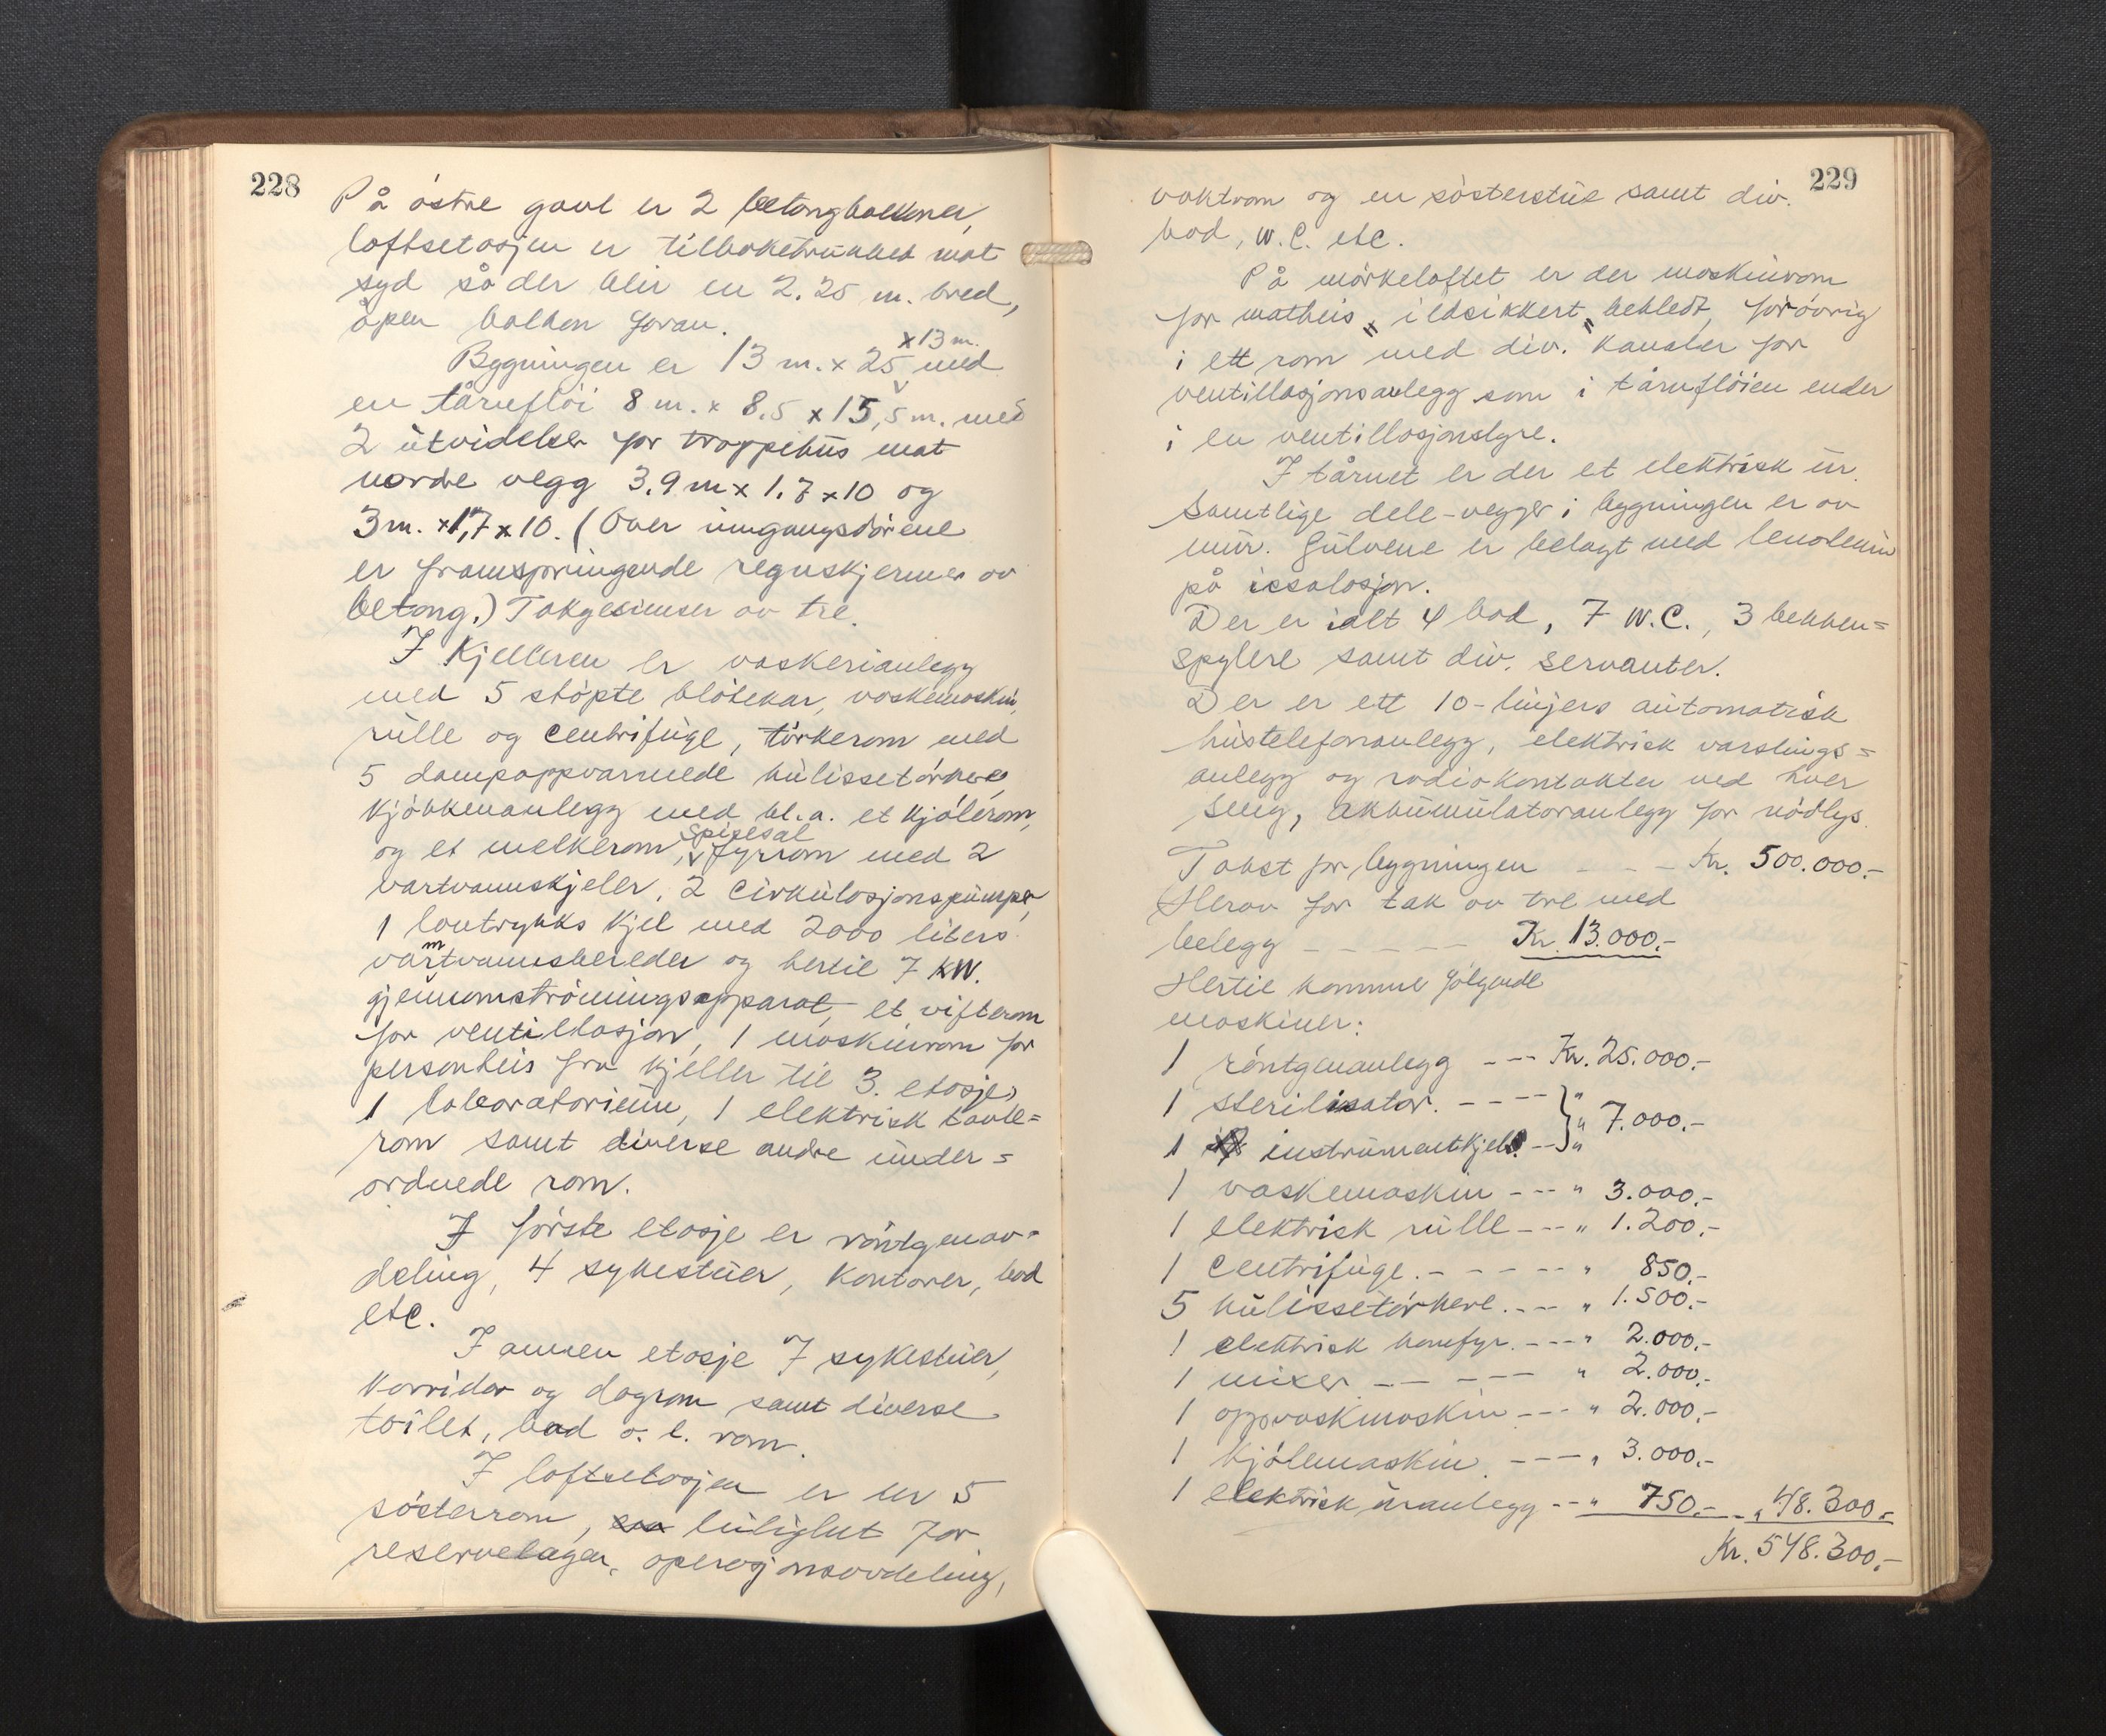 228
På östre gavl er 2 betongbalkoner,
loftsetasjen er tilbaketrukket mot
syd så der blir en 2.25 m. bred,
åpen balkon foran.
x 13 m.
Bygningen er 13 m. x 25 med
en tårnflöi 8 m. x 8.5 x 15,5 m. med
2 utvidelser for trappehus mot
nordre vegg 3.9 m x 1.7 x 10 og
3 m. x 1,7 x 10. (Over inngangsdörene
er framspringende regnskjermer av
betong.) Takgesimser av tre.
I Kjelleren er vaskerianlegg
med 5 stöpte blötekar, vaskemaskin,
rulle og centrifuge, törkerom med
5 dampoppvarmede kulissetörkere,
kjökkenanlegg med bl.a. et kjölerom,
og et melkerom, spisesal
fyrrom med 2
vartvannskjeler, 2 cirkulasjonspumper,
1 lavtrykks kjel med 2000 liters
varmtvannsbereder og hertil 7 KW.
gjennomströmningsapparat, et vifterom
for ventillasjon, 1 maskinrom for
personheis fra kjeller til 3. etasje,
1 laboratorium, 1 elektrisk tavle=
rom samt diverse andre under=
ordnede rom.
I förste etasje er röntgenav=
deling, 4 sykestuer, kontorer, bad
etc.
I annen etasje 7 sykestuer,
korridor og dagrom samt diverse
toilet, bad o. l. rom.
I loftsetasjen er der 5
sösterrom, leilighet for
reservelager, operasjonsavdeling,
229
vaktrom og en sösterstue samt div.
bad, W.C. etc.
På mörkeloftet er der maskinrom
for matheis " ildsikkert " bekledt, forövrig
i ett rom med div. kanaler for
ventillasjonsanlegg som i tårnflöien ender
i en ventillasjonslyre.
I tårnet er der et elektrisk ur.
Samtlige dele-vegger i bygningen er av
mur. Gulvene er belagt med lenoleum
på issolasjon.
Der er ialt 4 bad, 7 W.C., 3 bekken=
spylere samt div. servanter.
Der er ett 10-linjers automatisk
hustelefonanlegg, elektrisk varslings=
anlegg og radiokontakter ved hver
seng, akkumulatoranlegg for nödlys.
Takst for bygningen - - - Kr. 500.000.-
Herav for tak av tre med
belegg - - - - - Kr. 13.000.-
Hertil kommer fölgende
maskiner:
1 röntgenanlegg - - - Kr. 25.000.-
1 sterilisator. - - - - " } " 7.000.-
1 instrumentkjel. - - "
1 vaskemaskin - - - " 3.000.-
1 elektrisk rulle - - - " 1.200.-
1 centrifuge. - - - - - " 850.-
5 kulissetörkere. - - - " 1.500.-
1 elektrisk komfyr. - - - " 2.000.-
1 mixer - - - - - " 2.000.-
1 oppvaskmaskin - - - " 2.000.-
1 kjölemaskin. - - - " 3.000.-
1 elektrisk uranlegg - - " 750.- - " 48.300.-
Kr. 548.300.-